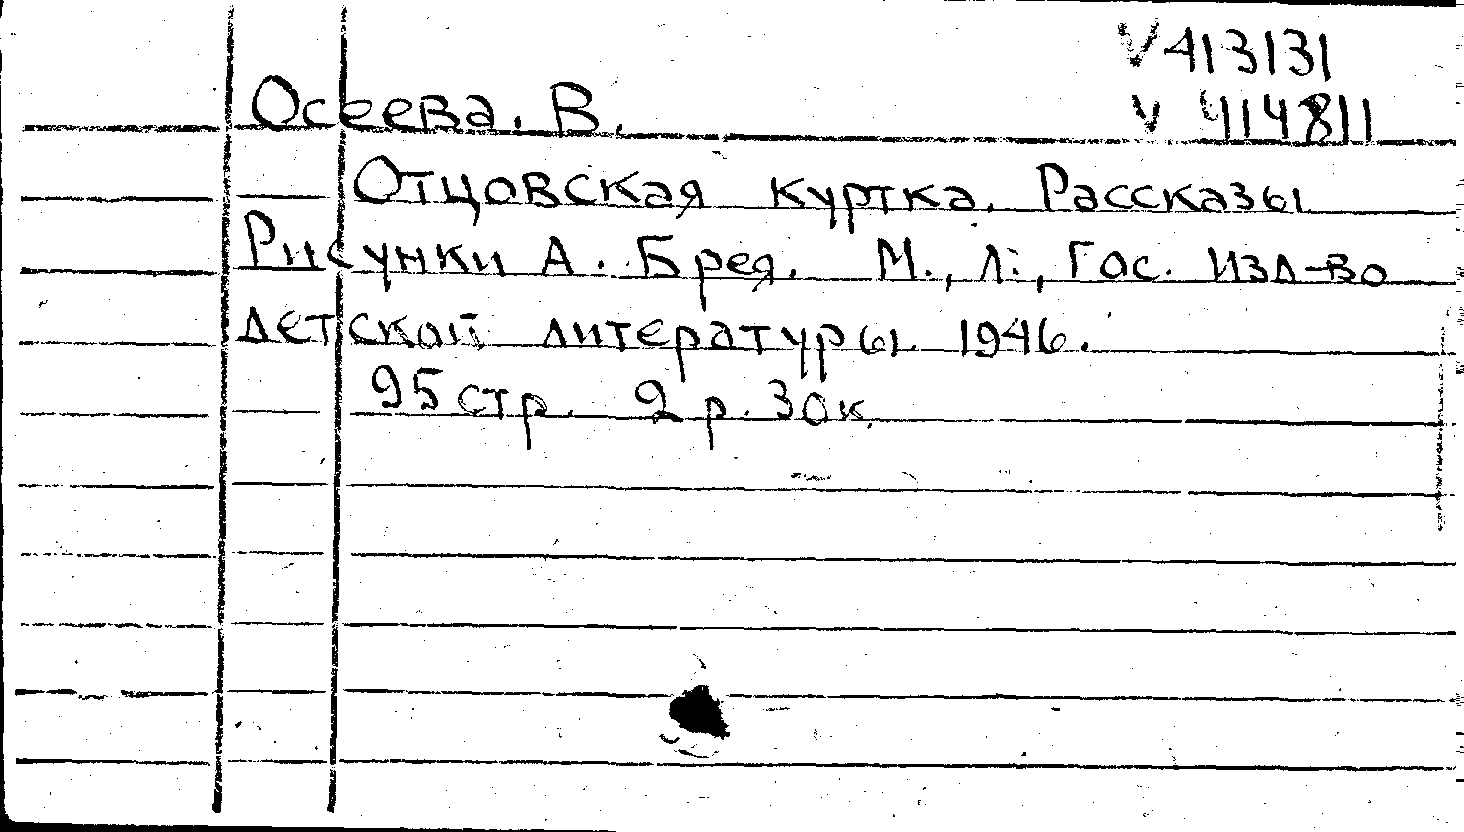 V 413131
Осеева. В.
V 414811
Отцовская куртка. Рассказы
Рисунки А. Брея. М., Л., Гос. изд-во
детской литературы. 1946.
95 стр. 2 р. 30 к.